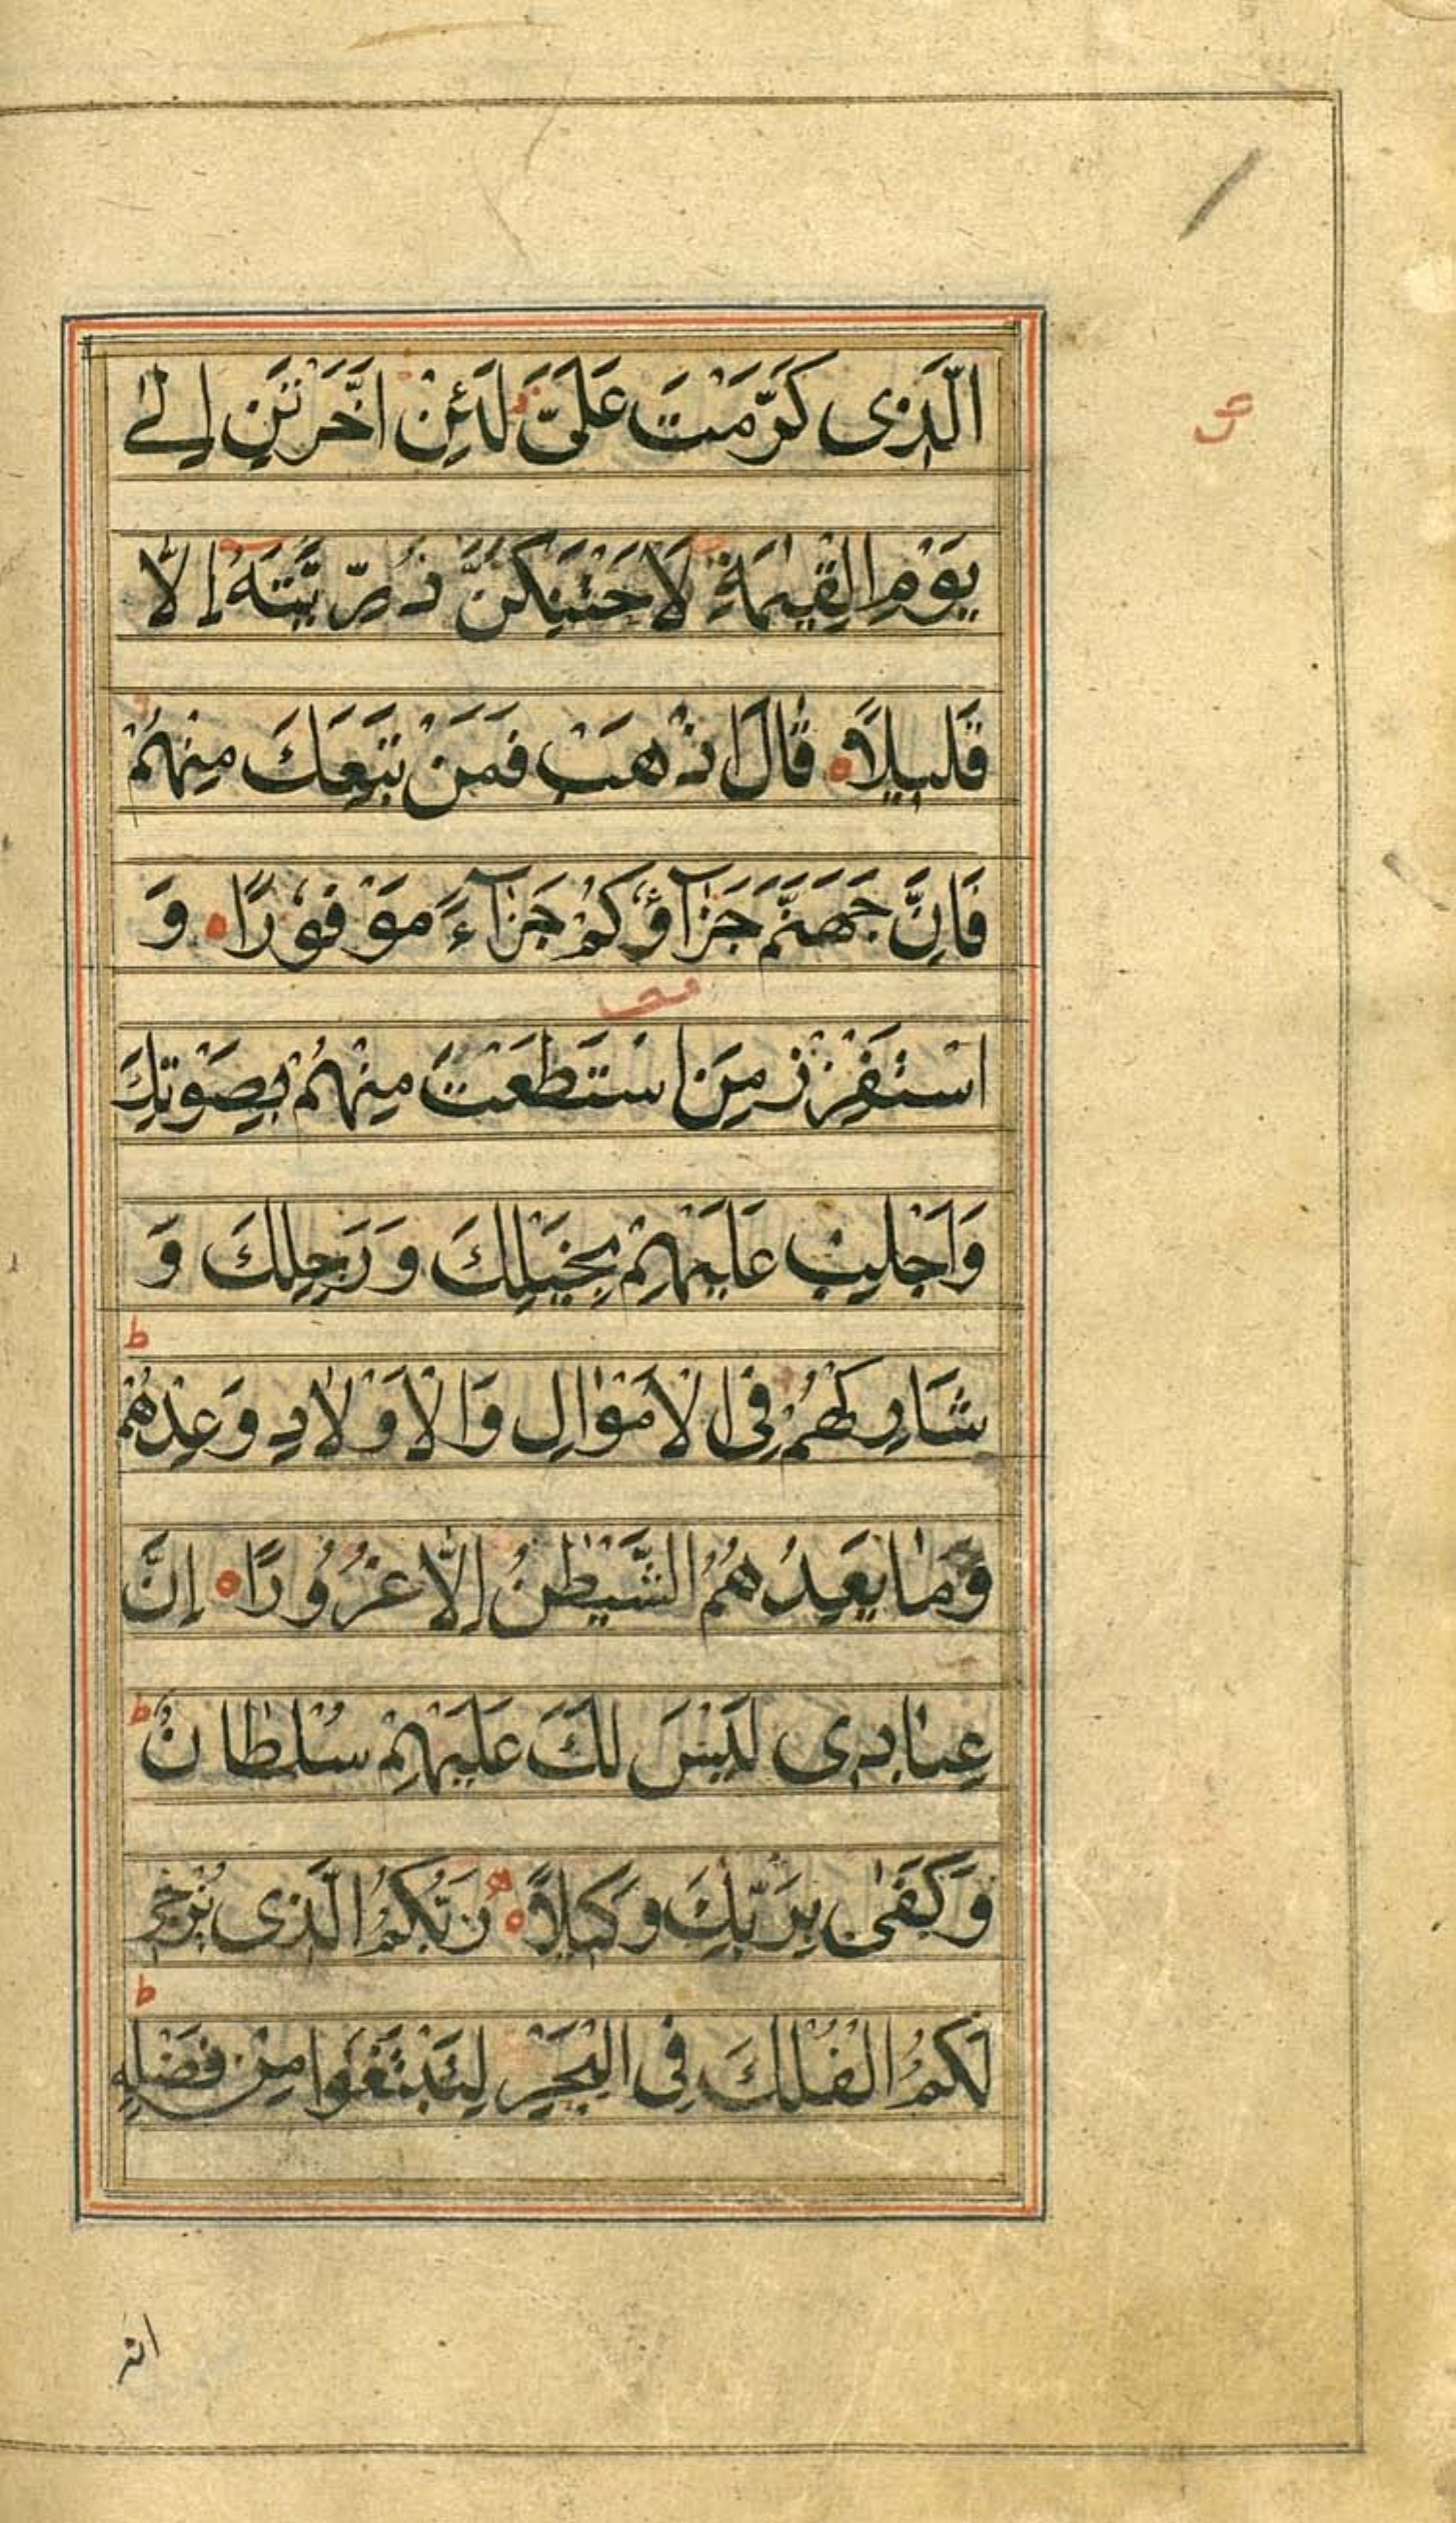 الَّذِی كَرَّمْتَ عَلَیَّ لَئِنْ اَخَّرْتَنِ اِلٰے
یَوْمِ الْقِیٰمَةِ لَاَحْتَنِكَنَّ ذُرِّیَّتَهٗ اِلَّا
قَلِیلًا ه قَالَ اذْهَبْ فَمَنْ تَبِعَكَ مِنْهُمْ
فَاِنَّ جَهَنَّمَ جَزَآؤُكُمْ جَزَآءً مَوْفُوْرًا ه وَ
اسْتَفْزِزْ مَنِ اسْتَطَعْتَ مِنْهُمْ بِصَوْتِكَ
وَاَجْلِبْ عَلَیْهِمْ بِخَیْلِكَ وَرَجِلِكَ وَ
ط
شَارِكْهُمْ فِی الْاَمْوَالِ وَالْاَوْلَادِ وَعِدْهُمْ
وَمَا یَعِدُهُمُ الشَّیْطٰنُ اِلَّا غُرُوْرًا ه اِنَّ
عِبَادِی لَیْسَ لَكَ عَلَیْهِمْ سُلْطَانٌ ط
وَكَفٰی بِرَبِّكَ وَكِیلًا ه رَبُّكُمُ الَّذِی یُزْجِی
ط
لَكُمُ الْفُلْكَ فِی الْبَحْرِ لِتَبْتَغُوْا مِنْ فَضْلِهٖ
انه